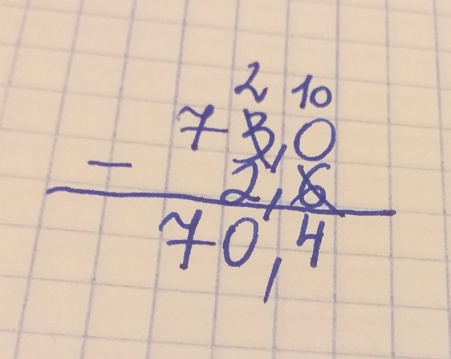 2 10
73,0
−
2,6
70,4